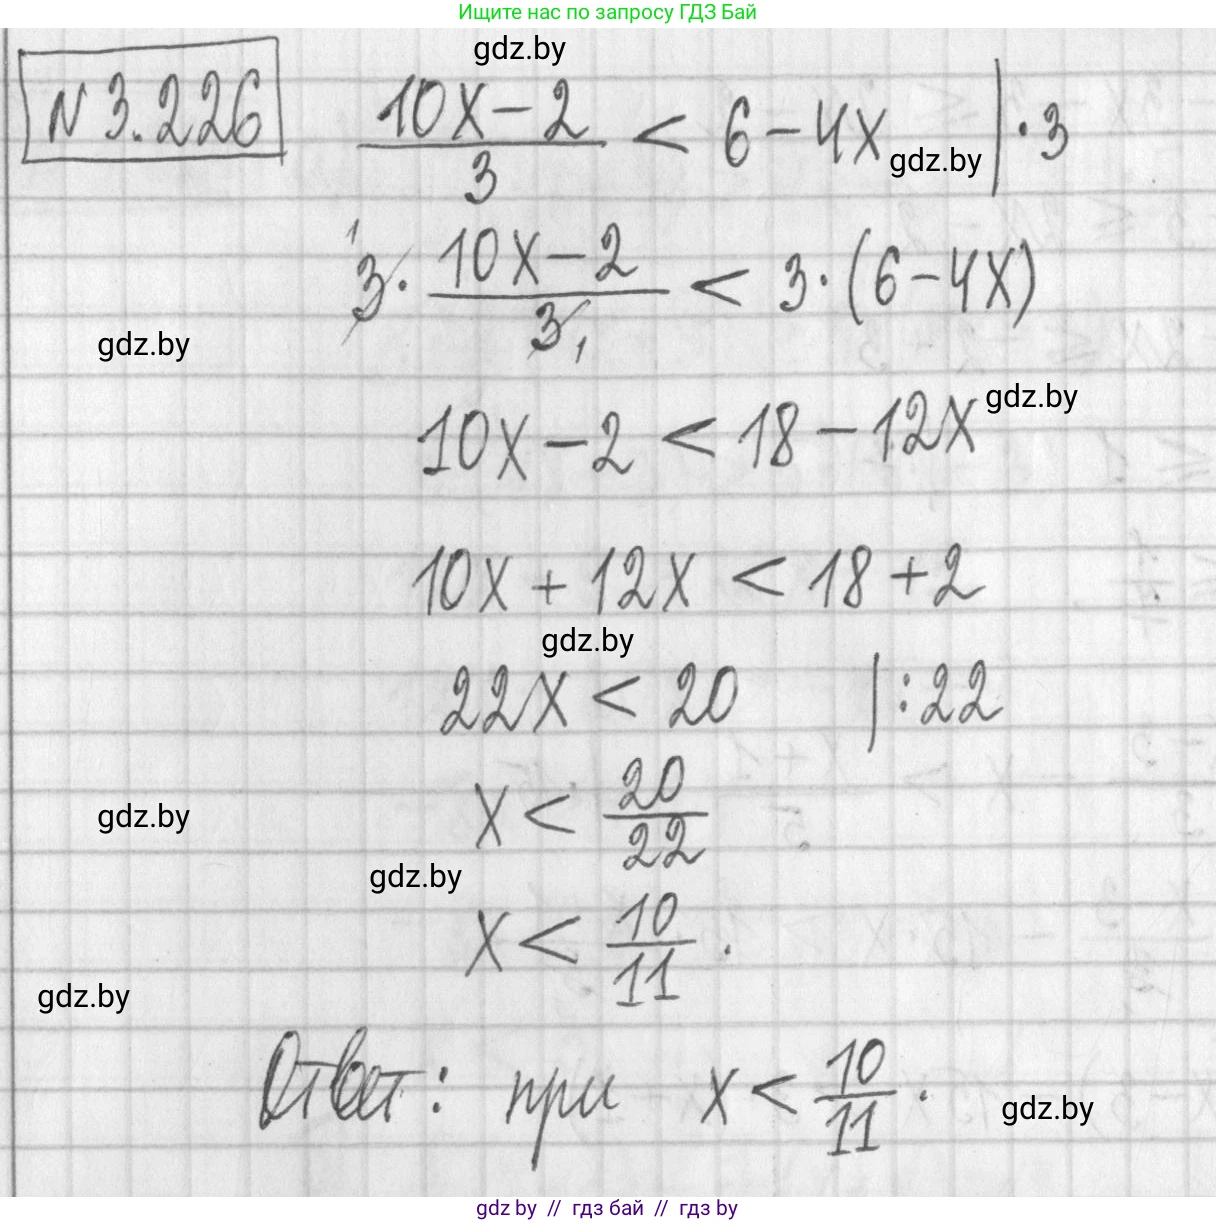 Ищите нас по запросу ГДЗ Бай
gdz.by
N 3.226
10x − 2 / 3 < 6 − 4x | · 3
gdz.by
¹3 · 10x − 2 / 3₁ < 3 · (6 − 4x)
gdz.by
gdz.by
10x − 2 < 18 − 12x
10x + 12x < 18 + 2
gdz.by
22x < 20 | : 22
x < 20/22
gdz.by
gdz.by
x < 10/11 .
gdz.by
Ответ: при x < 10/11 .
gdz.by
gdz by // гдз бай // гдз by